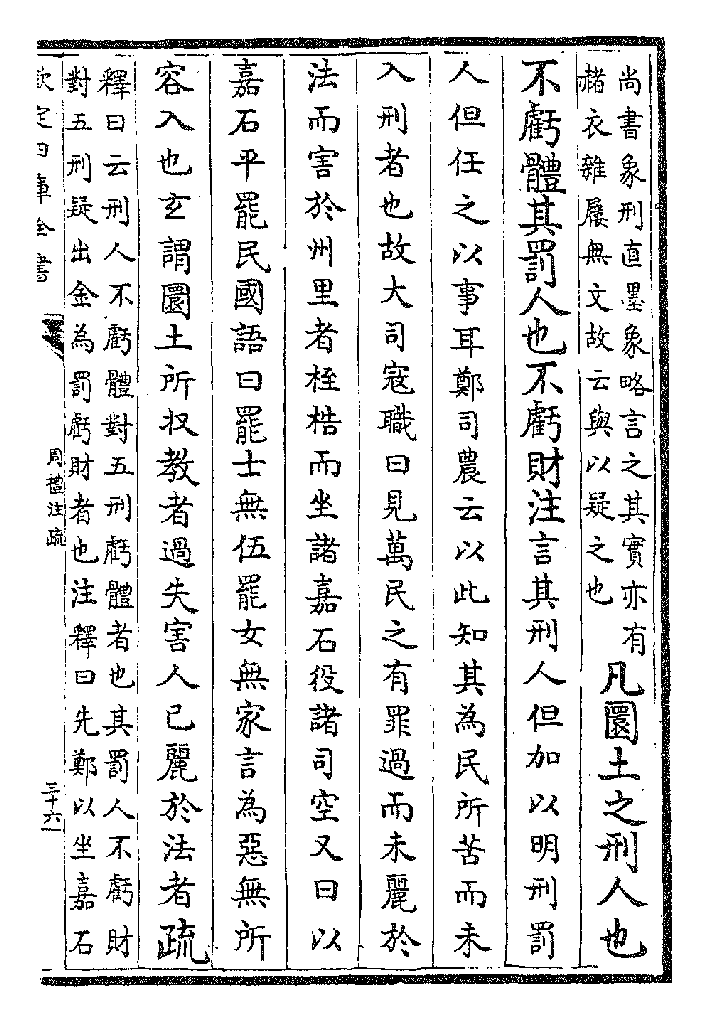 尚書象刑直墨象略言之其實亦有
赭衣雜屨無文故云與以疑之也
凡圜土之刑人也
不虧體其罰人也不虧財注言其刑人但加以明刑罰
人但任之以事耳鄭司農云以此知其為民所苦而未
入刑者也故大司寇職曰見萬民之有罪過而未麗於
法而害於州里者桎梏而坐諸嘉石役諸司空又曰以
嘉石平罷民國語曰罷士無伍罷女無家言為惡無所
容入也玄謂圜土所收教者過失害人已麗於法者疏
釋曰云刑人不虧體對五刑虧體者也其罰人不虧財
對五刑疑出金為罰虧財者也注釋曰先鄭以坐嘉石
欽定四庫全書
周禮注疏
三十六